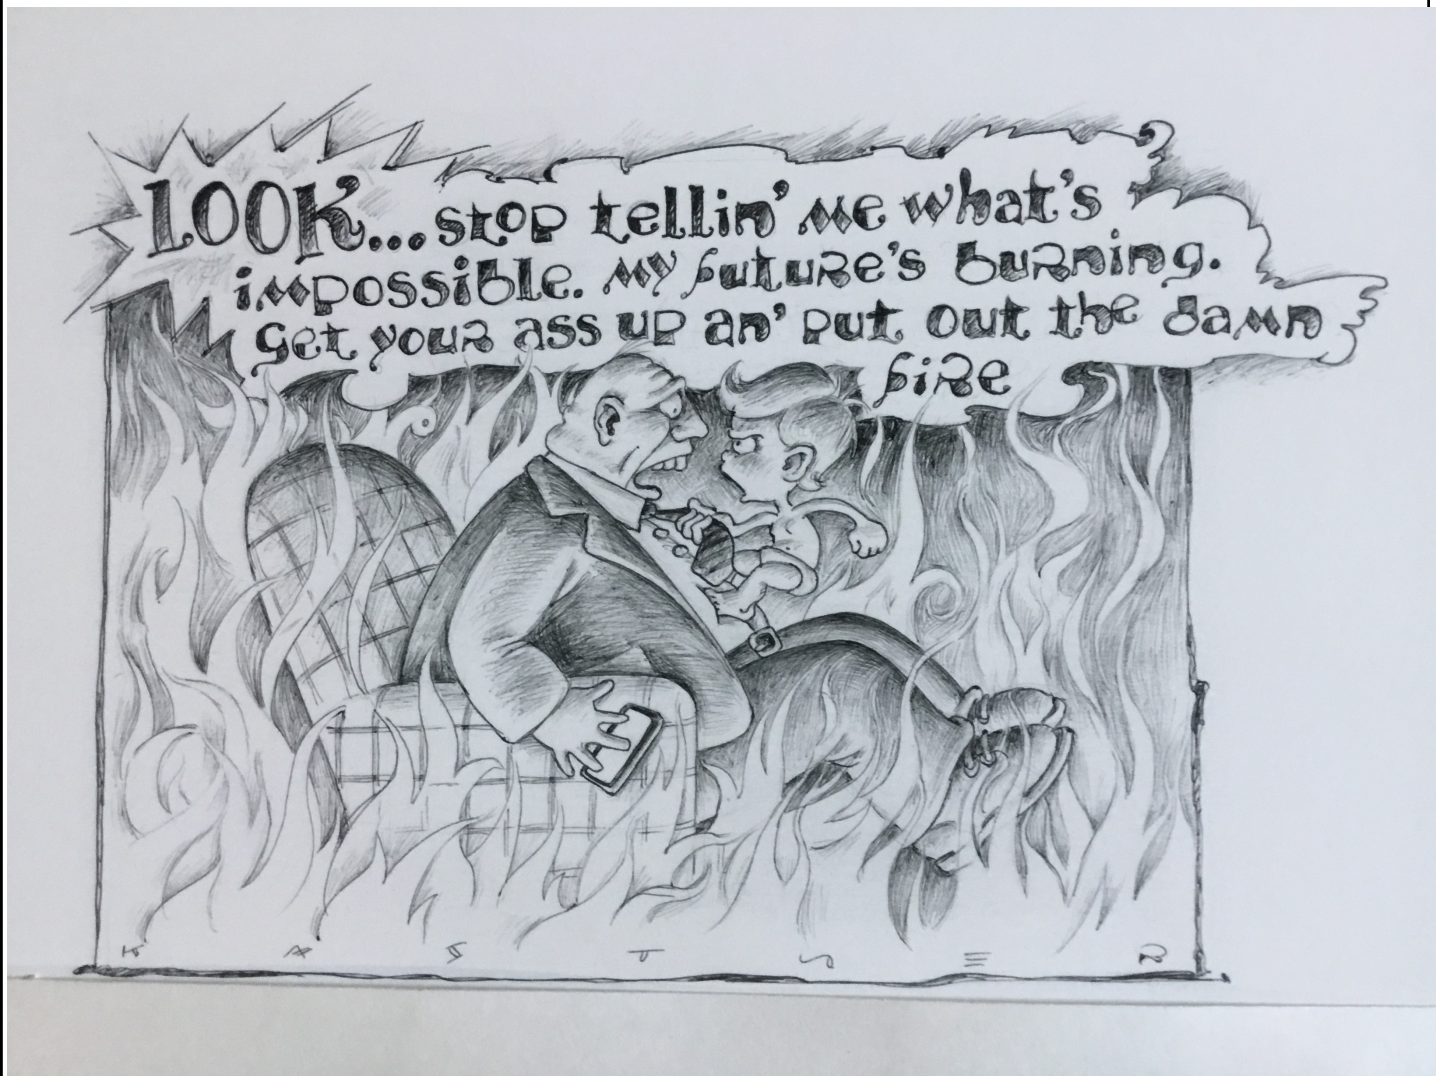 LOOK... stop tellin' me what's
impossible. My future's burning.
Get your ass up an' put out the damn
fire
K A S T N E R